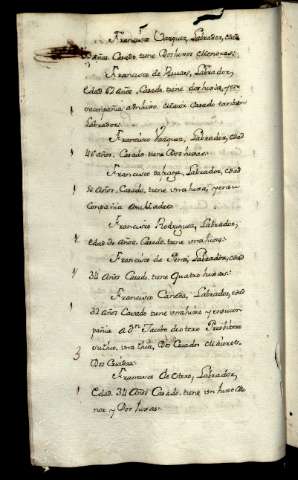 Francisco Vazquez, Labrador, edad
años. Casado tiene Dos hixos Menores.
Francisco de Labrador,
edad 62 años, Casado, tiene dos hixas, y en su
compañia a un hixo Casado tambien
Labrador.
Francisco Vazquez, Labrador, edad
46 años. Casado tiene Dos hixas.
Francisco Labrador, edad
de Años, Casado, tiene una hixa, y en su
Compañia
Francisco Rodriguez, Labrador,
edad de Años. Casado, tiene una hixa.
Francisco de Labrador, edad
32 Años Casado, tiene Quatro hixas.
Francisco Labrador, edad
32 Años Casado tiene una hixa y en su com
pañia a Dn. Jacobo de otero Presbitero
su tio, una thia, Dos Cuñados Menores.
Dos Criados.
Francisco de Otero, Labrador,
edad 34 Años Casado, tiene un hixo Me
nor y Dos hixas.